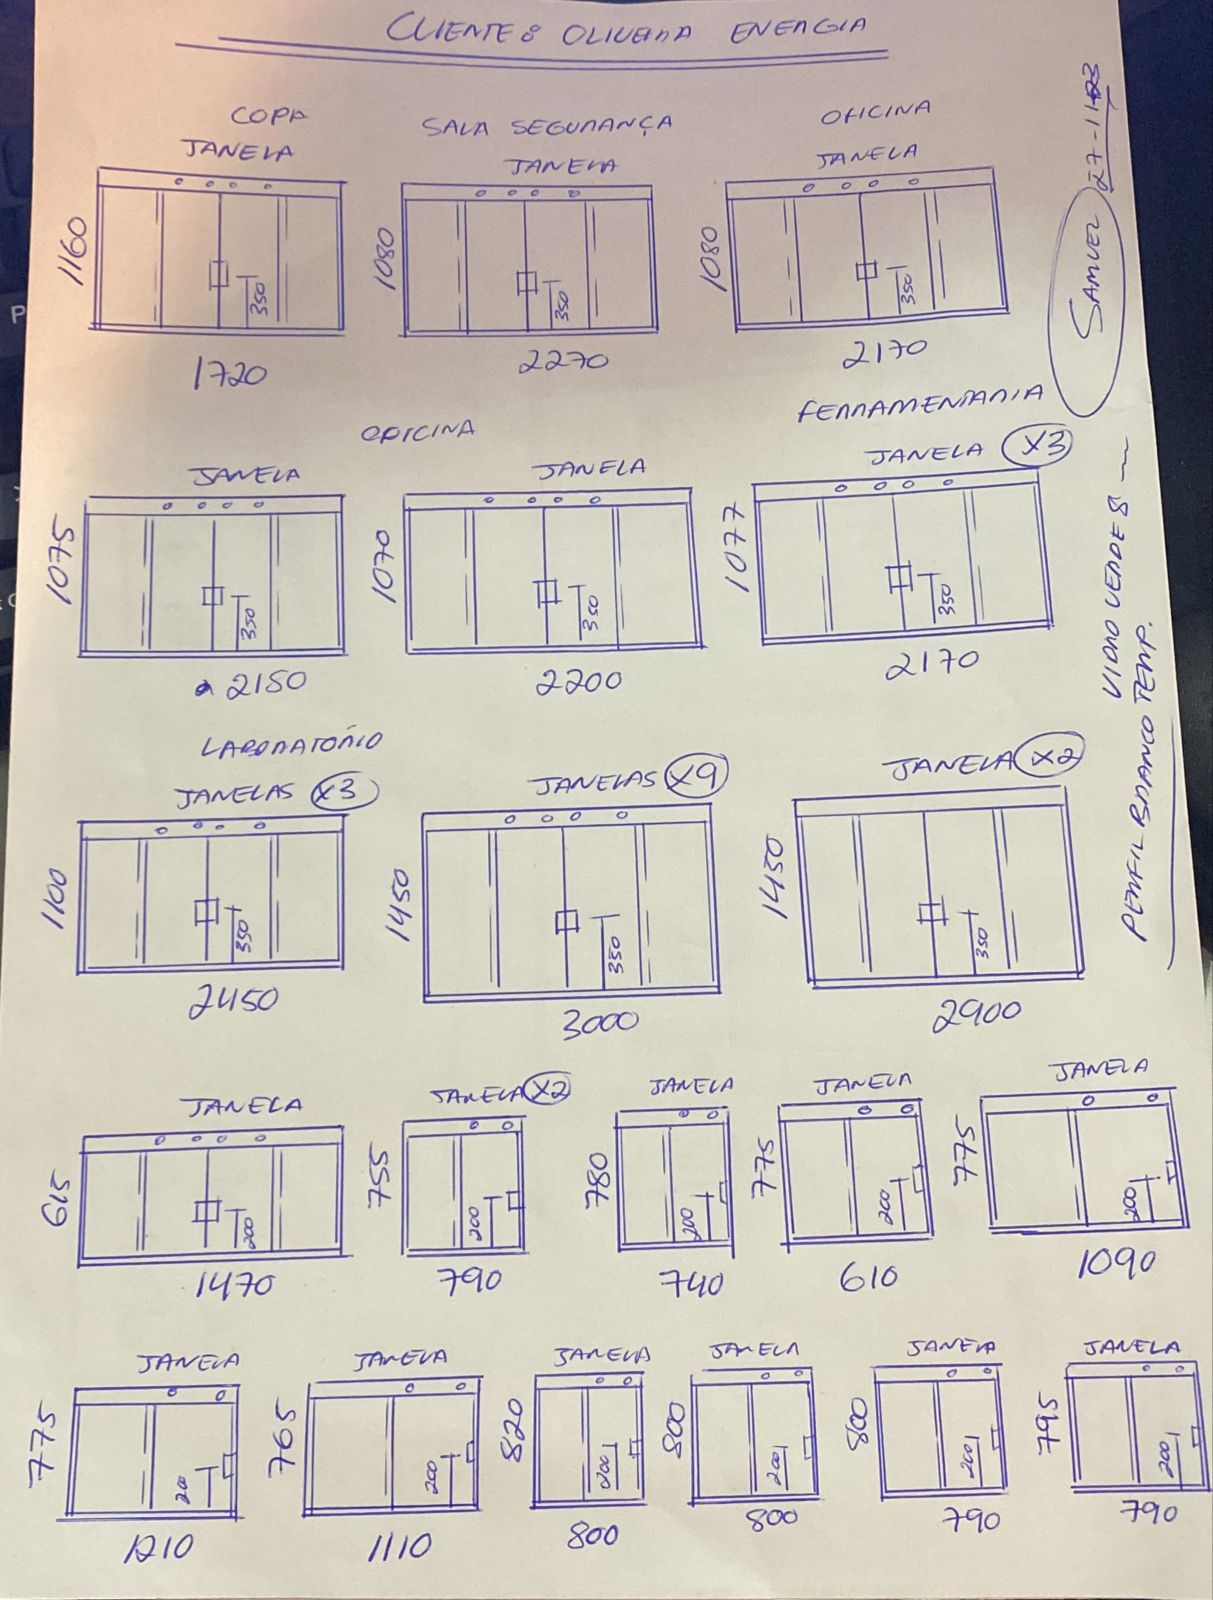 CLIENTE: OLIVEIRA ENERGIA
COPA
JANELA
1160
350
1720
SALA SEGURANÇA
JANELA
1080
350
2270
OFICINA
JANELA
1080
350
2170
SAMUEL 27-11-23
OFICINA
JANELA
1075
350
2150
JANELA
1070
350
2200
FERRAMENTARIA
JANELA X3
1077
350
2170
VIDRO VERDE 8
PERFIL BRANCO TEMP.
LABORATÓRIO
JANELAS X3
1100
350
2450
JANELAS X9
1450
350
3000
JANELA X2
1450
350
2900
JANELA
615
200
1470
JANELA X2
755
200
790
JANELA
780
200
740
JANELA
775
200
610
JANELA
775
200
1090
JANELA
775
200
1210
JANELA
765
200
1110
JANELA
820
200
800
JANELA
800
200
800
JANELA
800
200
790
JANELA
795
200
790